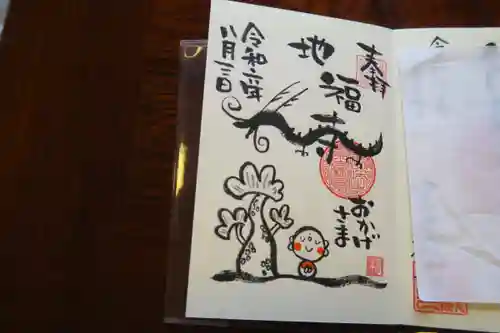 奉拝
地福寺
おかげ
さま
令和六年
八月二日
令